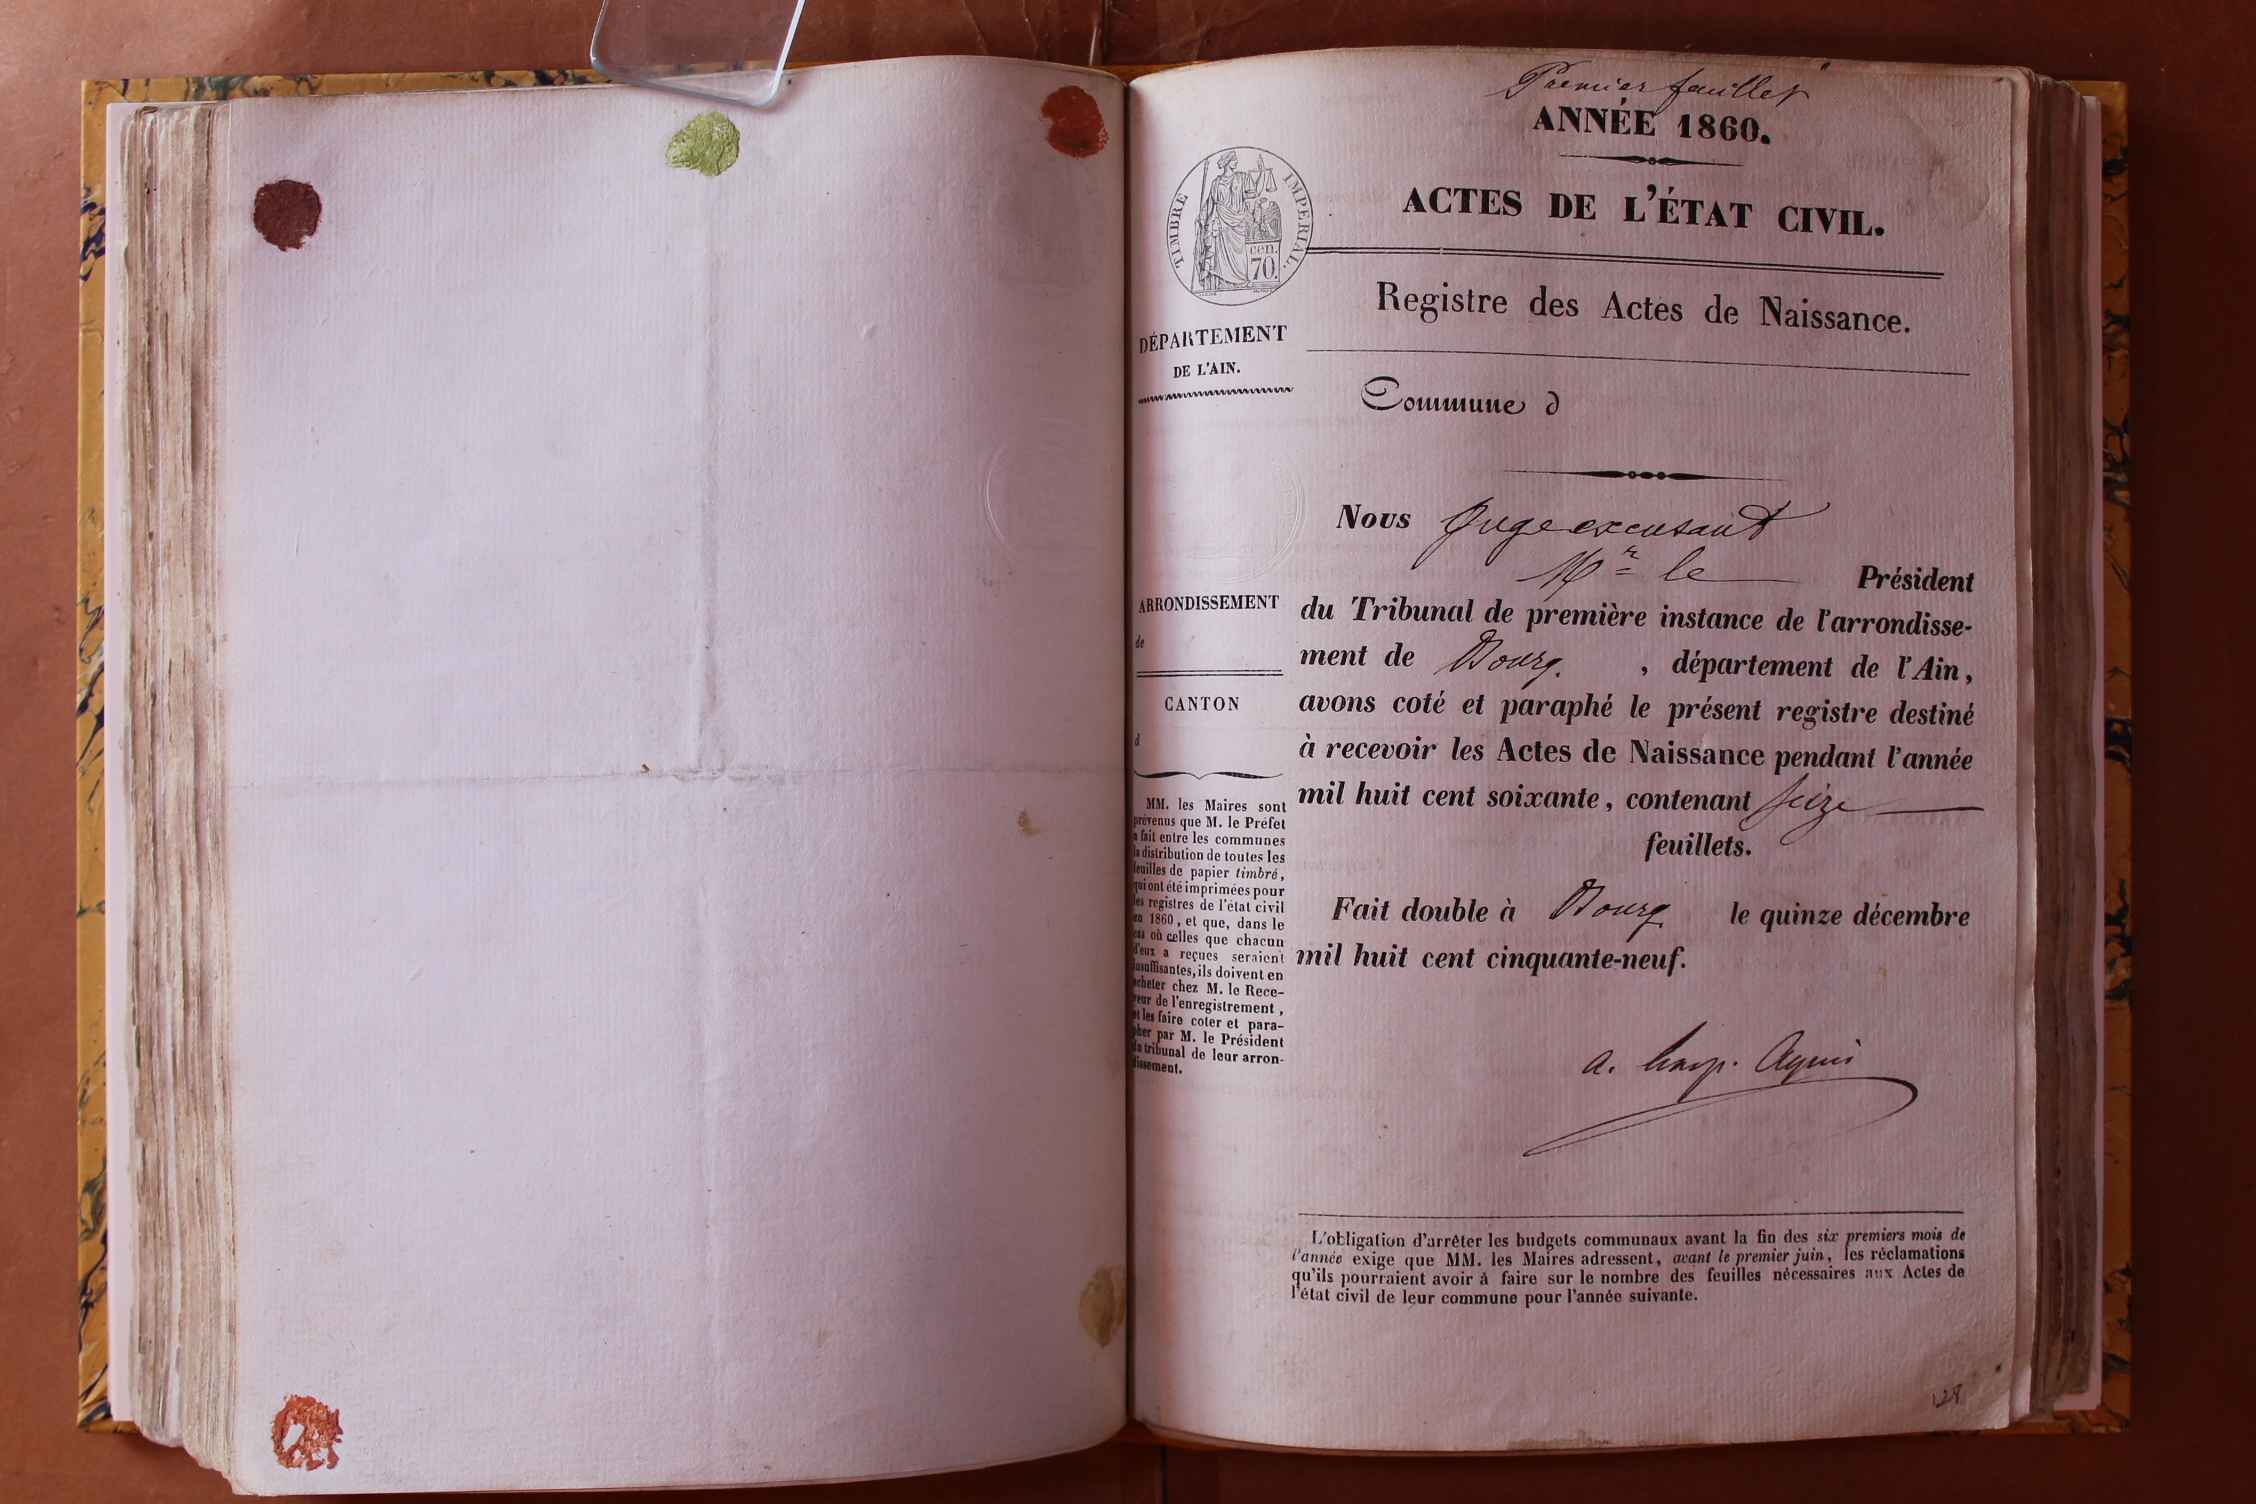 Premier feuillet
ANNÉE 1860.
ACTES DE L'ÉTAT CIVIL.
TIMBRE IMPÉRIAL.
cen.
70.
Registre des Actes de Naissance.
DÉPARTEMENT
DE L'AIN.
Commune d
Nous Juge excusant
Mr le Président
du Tribunal de première instance de l'arrondisse-
ment de Bourg. , département de l'Ain,
avons coté et paraphé le présent registre destiné
à recevoir les Actes de Naissance pendant l'année
mil huit cent soixante, contenant seize
feuillets.
Fait double à Bourg le quinze décembre
mil huit cent cinquante-neuf.
ARRONDISSEMENT
de
CANTON
d
MM. les Maires sont
prévenus que M. le Préfet
a fait entre les communes
la distribution de toutes les
feuilles de papier timbré,
qui ont été imprimées pour
les registres de l'état civil
en 1860, et que, dans le
cas où celles que chacun
d'eux a reçues seraient
insuffisantes, ils doivent en
acheter chez M. le Rece-
veur de l'enregistrement,
et les faire coter et para-
pher par M. le Président
du tribunal de leur arron-
dissement.
L'obligation d'arrêter les budgets communaux avant la fin des six premiers mois de
l'année exige que MM. les Maires adressent, avant le premier juin, les réclamations
qu'ils pourraient avoir à faire sur le nombre des feuilles nécessaires aux Actes de
l'état civil de leur commune pour l'année suivante.
128